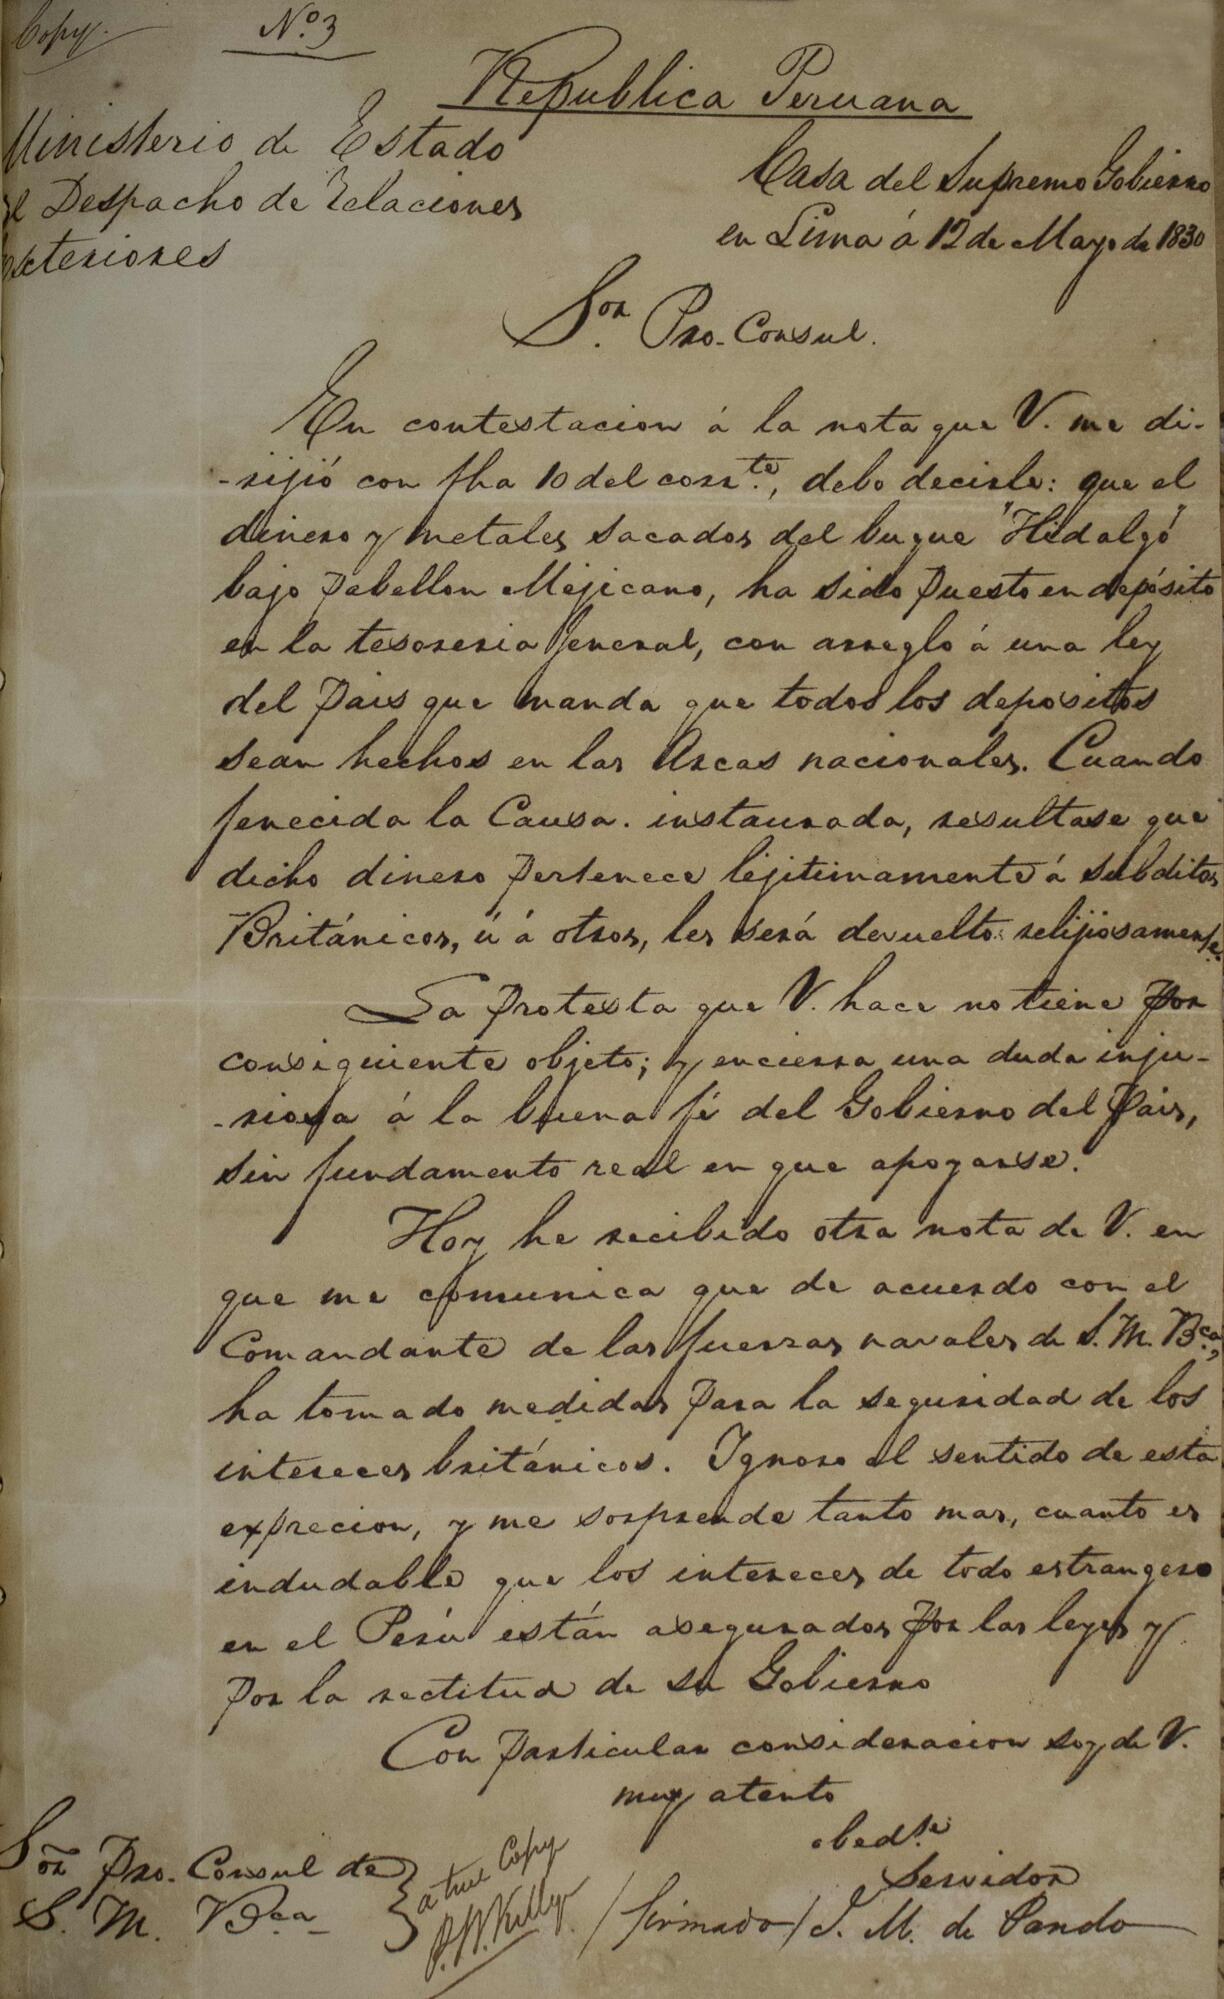 Copy.
Nº. 3
Republica Peruana
Ministerio de Estado
el Despacho de Relaciones
Esteriores
Casa del Supremo Gobierno
en Lima á 12 de Mayo de 1830
Sor. Pro-Consul.
En contestacion á la nota que V. me di-
-rijió con fha 10 del corrte., debo decirle: que el
dinero y metales sacados del buque "Hidalgo"
bajo pabellon Mejicano, ha sido puesto en depósito
en la tesoreria Jeneral, con arreglo á una ley
del Pais que manda que todos los depositos
sean hechos en las Arcas nacionales. Cuando
fenecida la Causa instaurada, resultase que
dicho dinero pertenece lejitimamente á subditos
Británicos, ú á otros, les será devuelto relijiosamente.
La protexta que V. hace no tiene por
consiguiente objeto; y encierra una duda inju-
-riosa á la buena fé del Gobierno del Pais,
sin fundamento real en que apoyarse.
Hoy he recibido otra nota de V. en
que me comunica que de acuerdo con el
Comandante de las fuerzas navales de S. M. Bca,
ha tomado medidas para la seguridad de los
intereces británicos. Ignoro el sentido de esta
exprecion, y me sorprende tanto mas, cuanto es
indudable que los intereces de todo estrangero
en el Perú están asegurados por las leyes y
por la rectitud de su Gobierno
Con particular consideracion soy de V.
muy atento
obedte
Servidor
/firmado/ J. M. de Pando
Sor. Pro-Consul de
S. M. Bca
a true Copy
P. W. Kelly